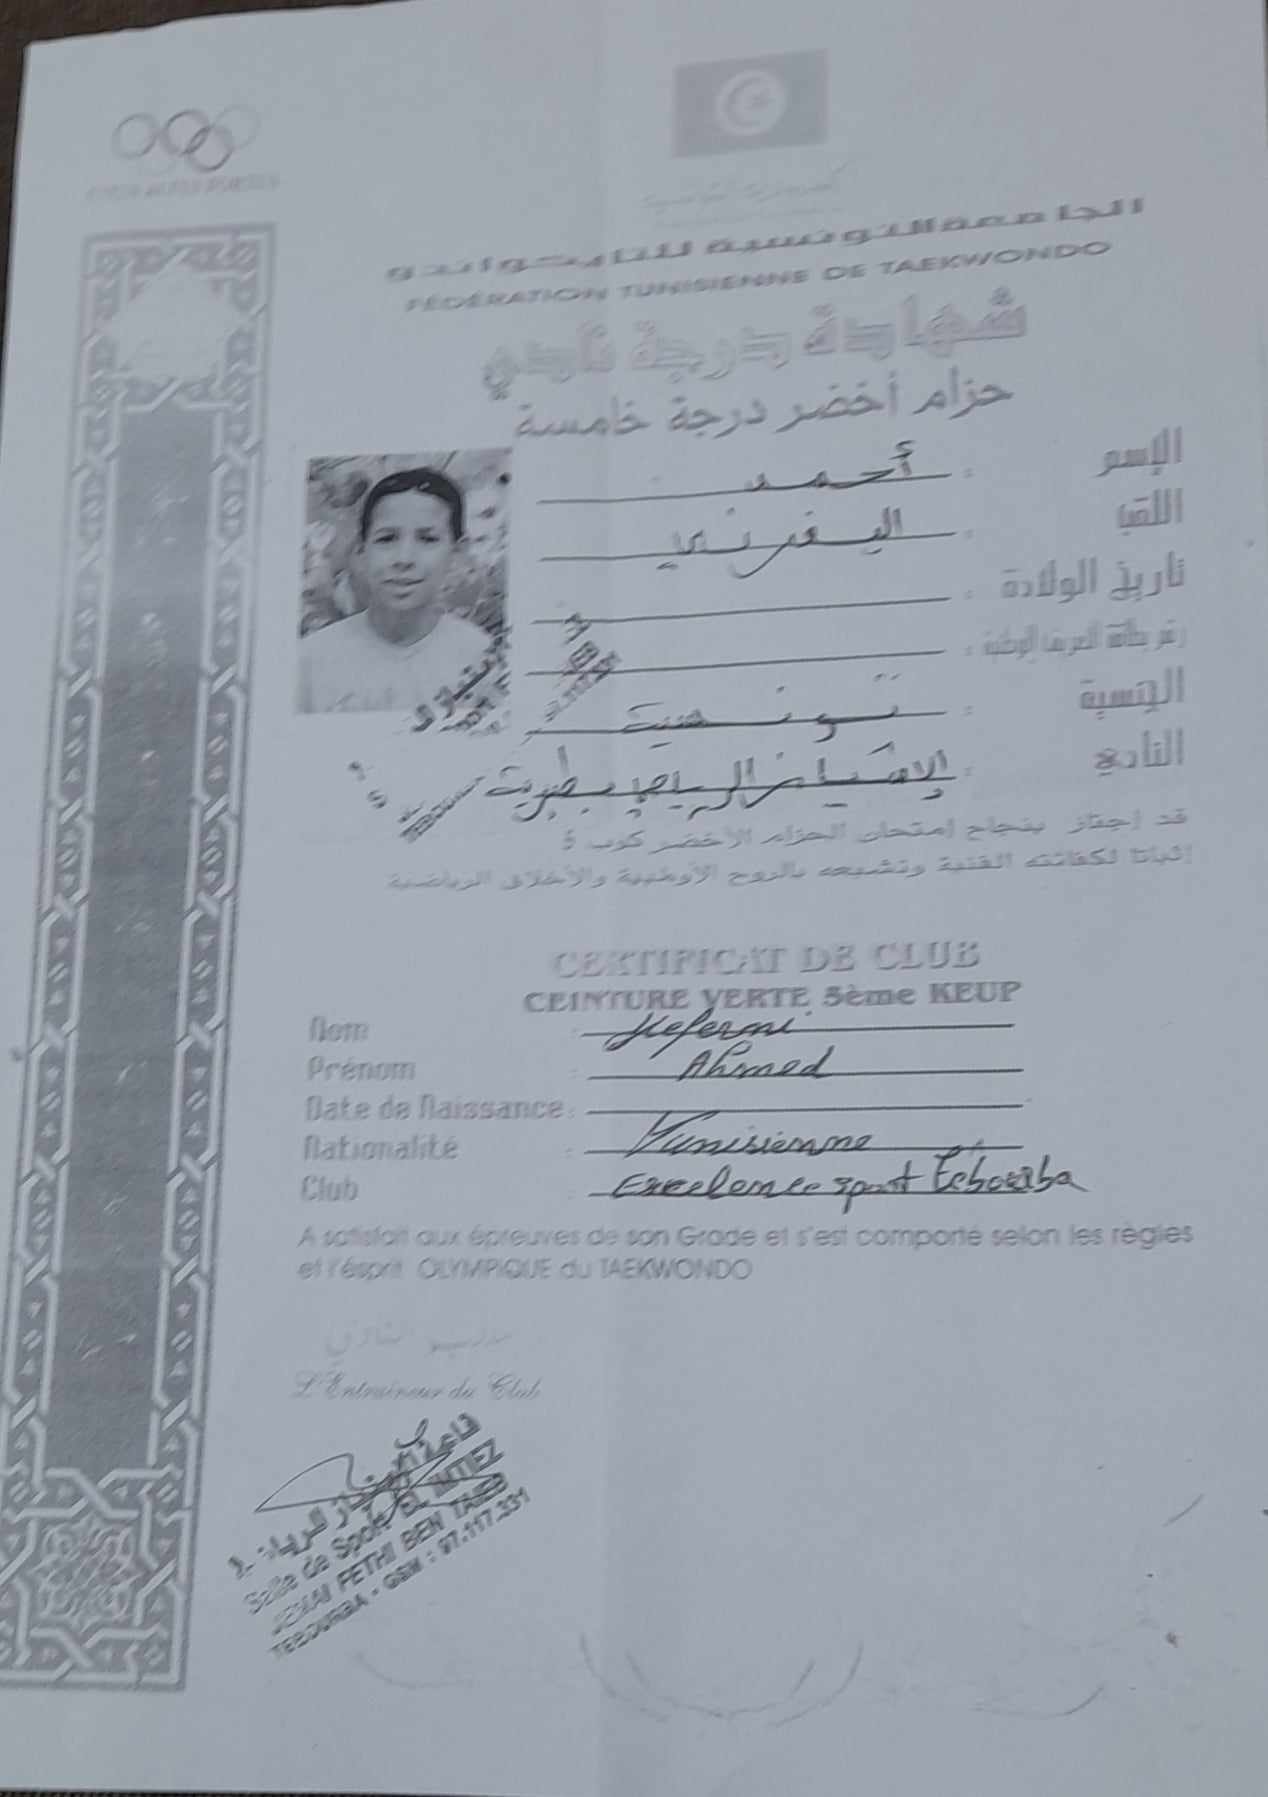 الجامعة التونسية للتايكواندو
FÉDÉRATION TUNISIENNE DE TAEKWONDO
شهادة درجة نادي
حزام أخضر درجة خامسة
الإسم : أحمد
اللقب : اليفرني
تاريخ الولادة :
رقم بطاقة التعريف الوطنية :
الجنسية : تونسية
النادي : الإمتياز الرياضي بطبربة
قد إجتاز بنجاح إمتحان الحزام الأخضر كوب 5
إثباتا لكفائته الفنية وتشبعه بالروح الأولمبية والأخلاق الرياضية
CERTIFICAT DE CLUB
CEINTURE VERTE 5ème KEUP
Nom :
Prénom : Ahmed
Date de Naissance :
Nationalité : Tunisienne
Club : Excelence sport Tebourba
A satisfait aux épreuves de son Grade et s'est comporté selon les règles
et l'ésprit OLYMPIQUE du TAEKWONDO
L'Entraineur du Club
Salle de Sport EL IMTIEZ
JEMAI FETHI BEN TAIEB
TEBOURBA - GSM : 97.117.331